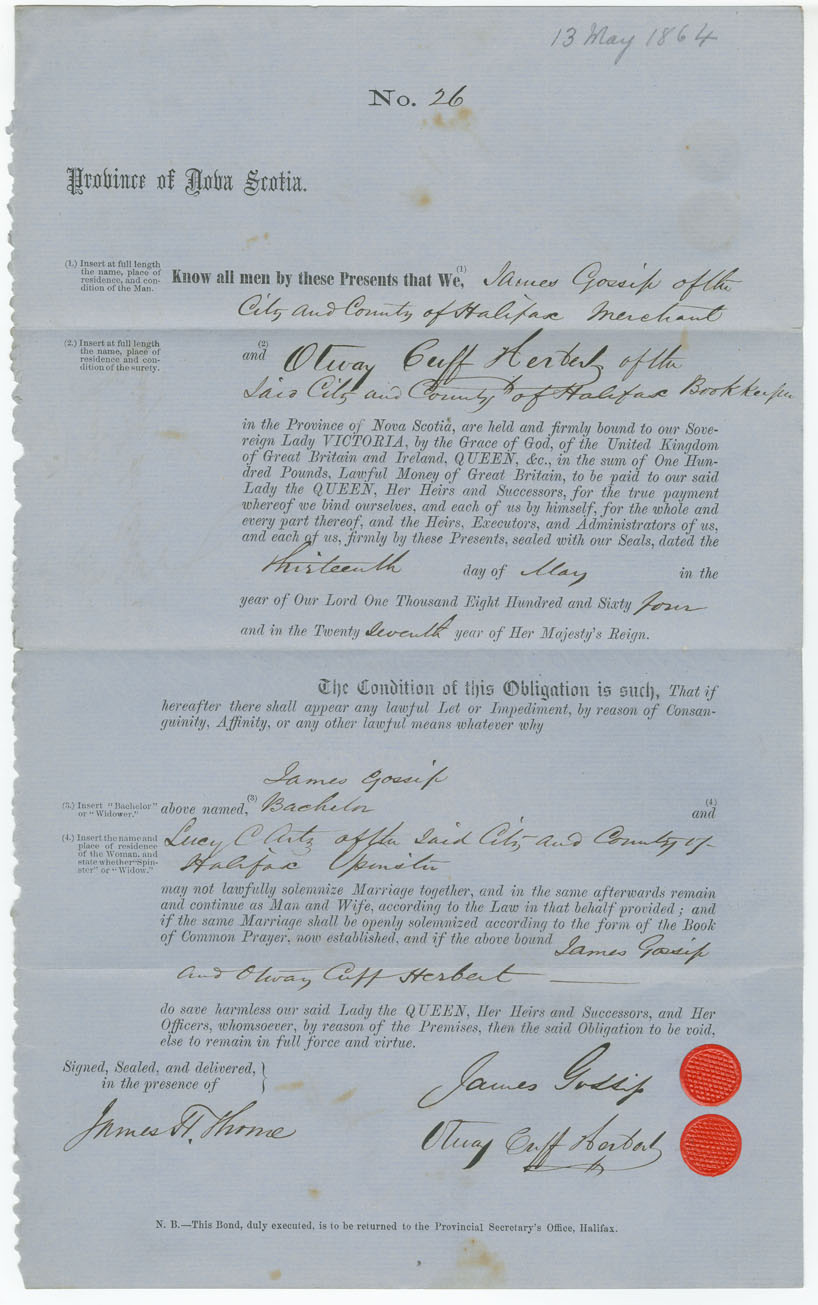 13 May 1864
No. 26
Province of Nova Scotia.
(1.) Insert at full length
the name, place of
residence, and con-
dition of the Man.
Know all men by these Presents that We, (1) James Gossip of the
City and County of Halifax Merchant
(2.) Insert at full length
the name, place of
residence and con-
dition of the surety.
(2)
and Otway Cuff Herbert of the
Said City and County of Halifax Bookkeeper
in the Province of Nova Scotia, are held and firmly bound to our Sove-
reign Lady VICTORIA, by the Grace of God, of the United Kingdom
of Great Britain and Ireland, QUEEN, &c., in the sum of One Hun-
dred Pounds, Lawful Money of Great Britain, to be paid to our said
Lady the QUEEN, Her Heirs and Successors, for the true payment
whereof we bind ourselves, and each of us by himself, for the whole and
every part thereof, and the Heirs, Executors, and Administrators of us,
and each of us, firmly by these Presents, sealed with our Seals, dated the
thirteenth day of May in the
year of Our Lord One Thousand Eight Hundred and Sixty four
and in the Twenty Seventh year of Her Majesty's Reign.
The Condition of this Obligation is such, That if
hereafter there shall appear any lawful Let or Impediment, by reason of Consan-
guinity, Affinity, or any other lawful means whatever why
James Gossip
(3.) Insert "Bachelor"
or "Widower."
above named, (3) Bachelor (4) and
(4.) Insert the name and
place of residence
of the Woman, and
state whether "Spin-
ster" or "Widow."
Lucy C Artz of the Said City and County of
Halifax Spinster
may not lawfully solemnize Marriage together, and in the same afterwards remain
and continue as Man and Wife, according to the Law in that behalf provided; and
if the same Marriage shall be openly solemnized according to the form of the Book
of Common Prayer, now established, and if the above bound James Gossip
and Otway Cuff Herbert
do save harmless our said Lady the QUEEN, Her Heirs and Successors, and Her
Officers, whomsoever, by reason of the Premises, then the said Obligation to be void,
else to remain in full force and virtue.
Signed, Sealed, and delivered,
in the presence of
James Gossip
James H. Thorne
Otway Cuff Herbert
N. B.—This Bond, duly executed, is to be returned to the Provincial Secretary's Office, Halifax.